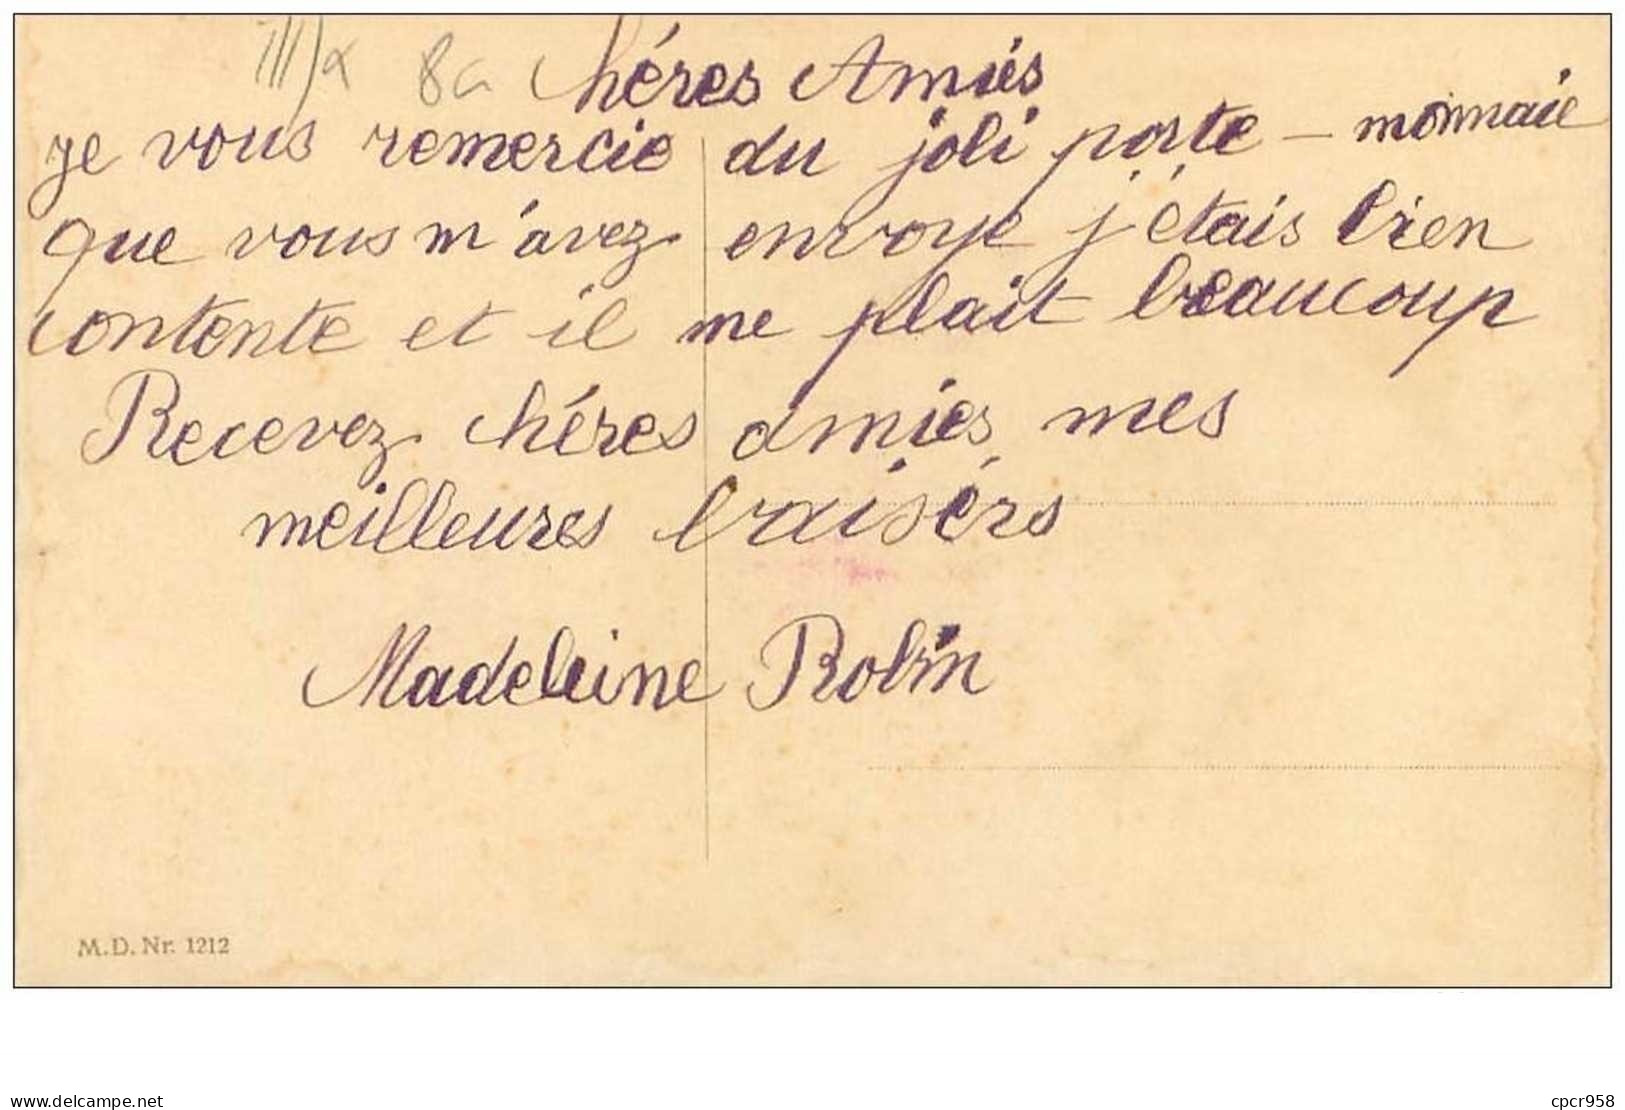 8a
Chéres Amies
je vous remercie du joli porte - monnaie
que vous m'avez envoye j'étais bien
contente et il me plait beaucoup
Recevez chéres amies mes
meilleures baisérs
Madeleine Robin
M.D. Nr. 1212
www.delcampe.net
cpcr958